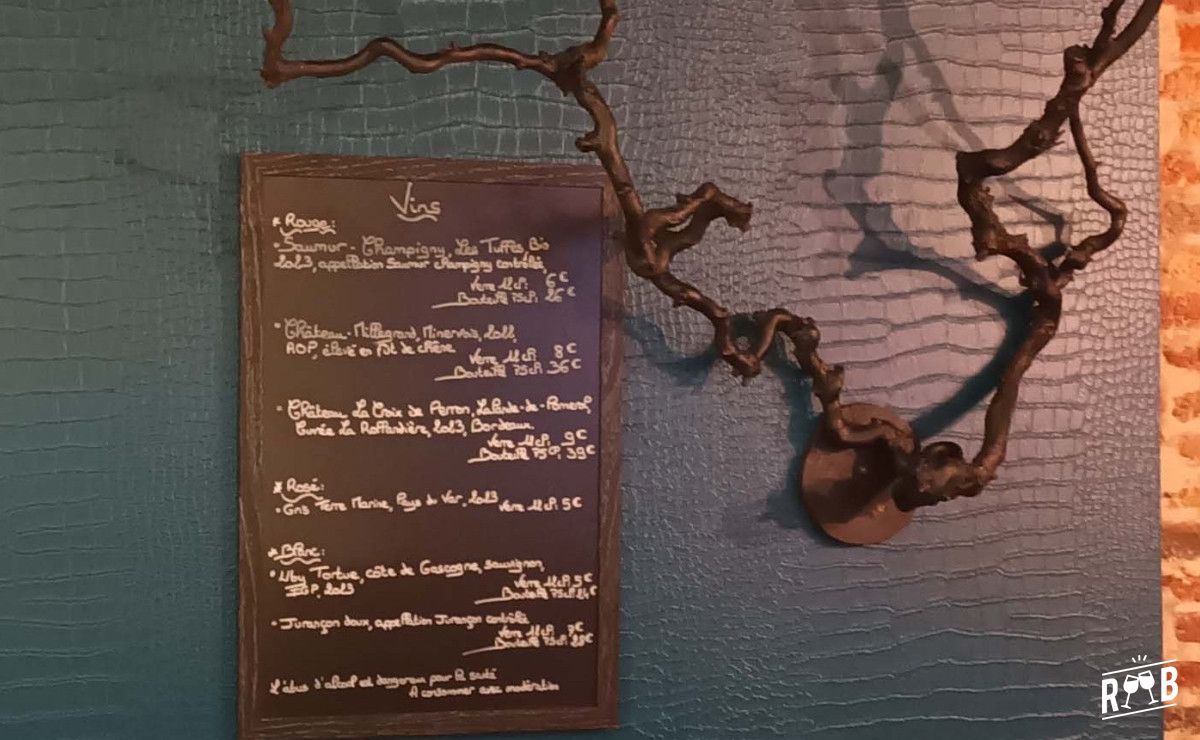 Vins
* Rouge:
• Saumur-Champigny, Les Tuffes, Bio
2023, appellation Saumur Champigny contrôlée,
Verre 12cl: 6€
Bouteille 75cl: 26€
• Château Millegrand, Minervois, 2022,
AOP, élevé en fût de chêne
Verre 12cl: 8€
Bouteille 75cl: 36€
• Château La Croix de Perron, Lalande-de-Pomerol,
Cuvée La 2023, Bordeaux
Verre 12cl: 9€
Bouteille 75cl: 39€
* Rosé:
• Gris Terre Marine, Pays du Var, 2023
Verre 12cl: 5€
* Blanc:
• Uby Tortue, côte de Gascogne, sauvignon,
IGP, 2023
Verre 12cl: 5€
Bouteille 75cl: 24€
• Jurançon doux, appellation Jurançon contrôlée
Verre 12cl: 7€
Bouteille 75cl: 28€
L'abus d'alcool est dangereux pour la santé
A consommer avec modération
R B